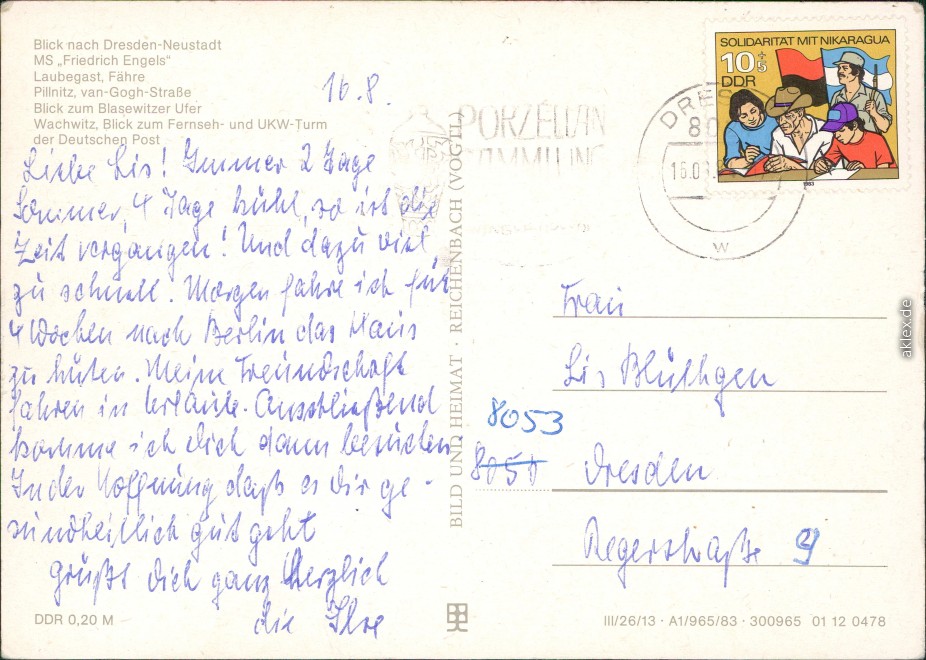 Blick nach Dresden-Neustadt
MS „Friedrich Engels“
Laubegast, Fähre
Pillnitz, van-Gogh-Straße
Blick zum Blasewitzer Ufer
Wachwitz, Blick zum Fernseh- und UKW-Turm
der Deutschen Post
16.8.
Liebe Lis! Immer 2 Tage
Sommer, 4 Tage kühl, so ist die
Zeit vergangen! Und dazu viel
zu schnell. Morgen fahre ich für
4 Wochen nach Berlin das Haus
zu hüten. Meine Freundschaft
fahren in Urlaub. Anschließend
komme ich Dich dann besuchen
In der Hoffnung daß es Dir ge-
sundheitlich gut geht
grüßt Dich ganz herzlich
die Ilse
DDR 0,20 M
BILD UND HEIMAT · REICHENBACH (VOGTL)
PORZELLAN
SAMMLUNG
DRES
80
16.0
w
SOLIDARITÄT MIT NIKARAGUA
10+5
DDR
1983
Frau
Lis Blüthgen
8053
8050 Dresden
Regerstraße 9
III/26/13 · A1/965/83 · 300965 01 12 0478
aklex.de